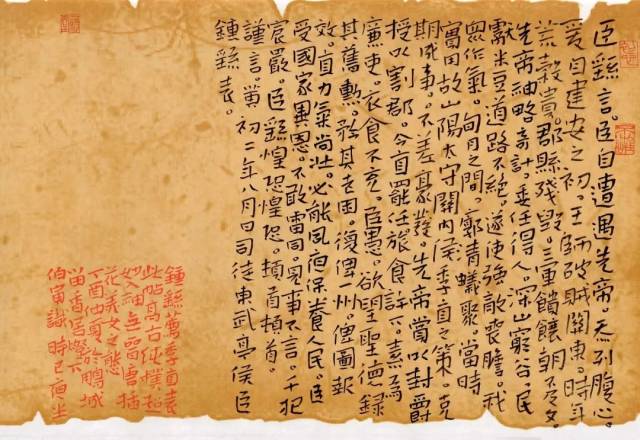 臣繇言。臣自遭遇先帝。忝列腹心。
爰自建安之初。王師破賊關東。時年
荒穀貴。郡縣殘毀。三軍饋饟。朝不及夕。
先帝神略奇計。委任得人。深山窮谷。民
獻米豆。道路不絕。遂使強敵喪膽。我
衆作氣。旬月之間。廓清蟻聚。當時
實用故山陽太守關內侯季直之策。克
期成事。不差豪發。先帝賞以封爵。
授以劇郡。今直罷任。旅食許下。素爲
廉吏。衣食不充。臣愚。欲望聖德錄
其舊勳。矜其老困。復俾一州。俾圖報
效。直力氣尚壯。必能夙夜保養人民。臣
受國家異恩。不敢雷同。見事不言。干犯
宸嚴。臣繇惶恐惶恐。頓首頓首。
謹言。黃初二年八月日司徒東武亭侯臣
鍾繇表。
鍾繇薦季直表
此帖高古純樸超
妙入神無晉唐插
花美女之態
丁酉仲夏於鵬城
留香居燈下
伯甯識 時已夜半